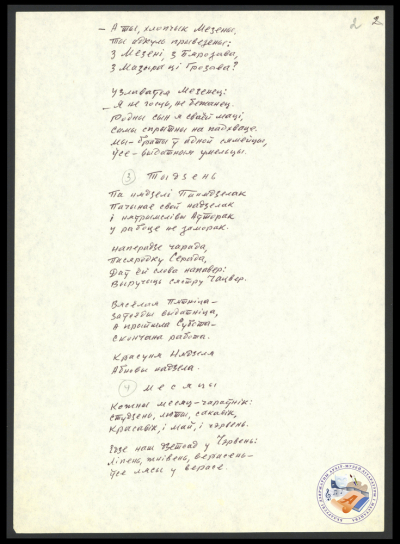 2 2
– А ты, хлопчык Мезены,
Ты адкуль прывезены:
З Мезені, з Бярозава,
З Мазыра ці Грозава?
Узлаваўся Мезенец:
– Я не госць, не бежанец.
Родны сын я сваёй маці,
Самы спрытны на падхваце.
Мы – браты ў адной сямейцы,
Усе – выдатныя умельцы.
3 Тыдзень
Па нядзелі Панядзелак
Пачынае свой надзелак
І нятрымслівы Аўторак
У рабоце не заморак.
Наперадзе чарада,
Пасярэдку Серада,
Дай ёй слова напавер:
Выручыць сястру Чацвер.
Вясёлая Пятніца –
Заўсёды выдатніца,
А прыйшла Субота –
Скончана работа.
Красуня Нядзеля
Абновы надзела.
4 Месяцы
Кожны месяц – чараўнік:
Студзень, люты, сакавік,
Красавік, і май, і чэрвень.
Ідзе наш Детсад у Чэрвень:
Ліпень, жнівень, верасень –
Усе лясы у верасе.